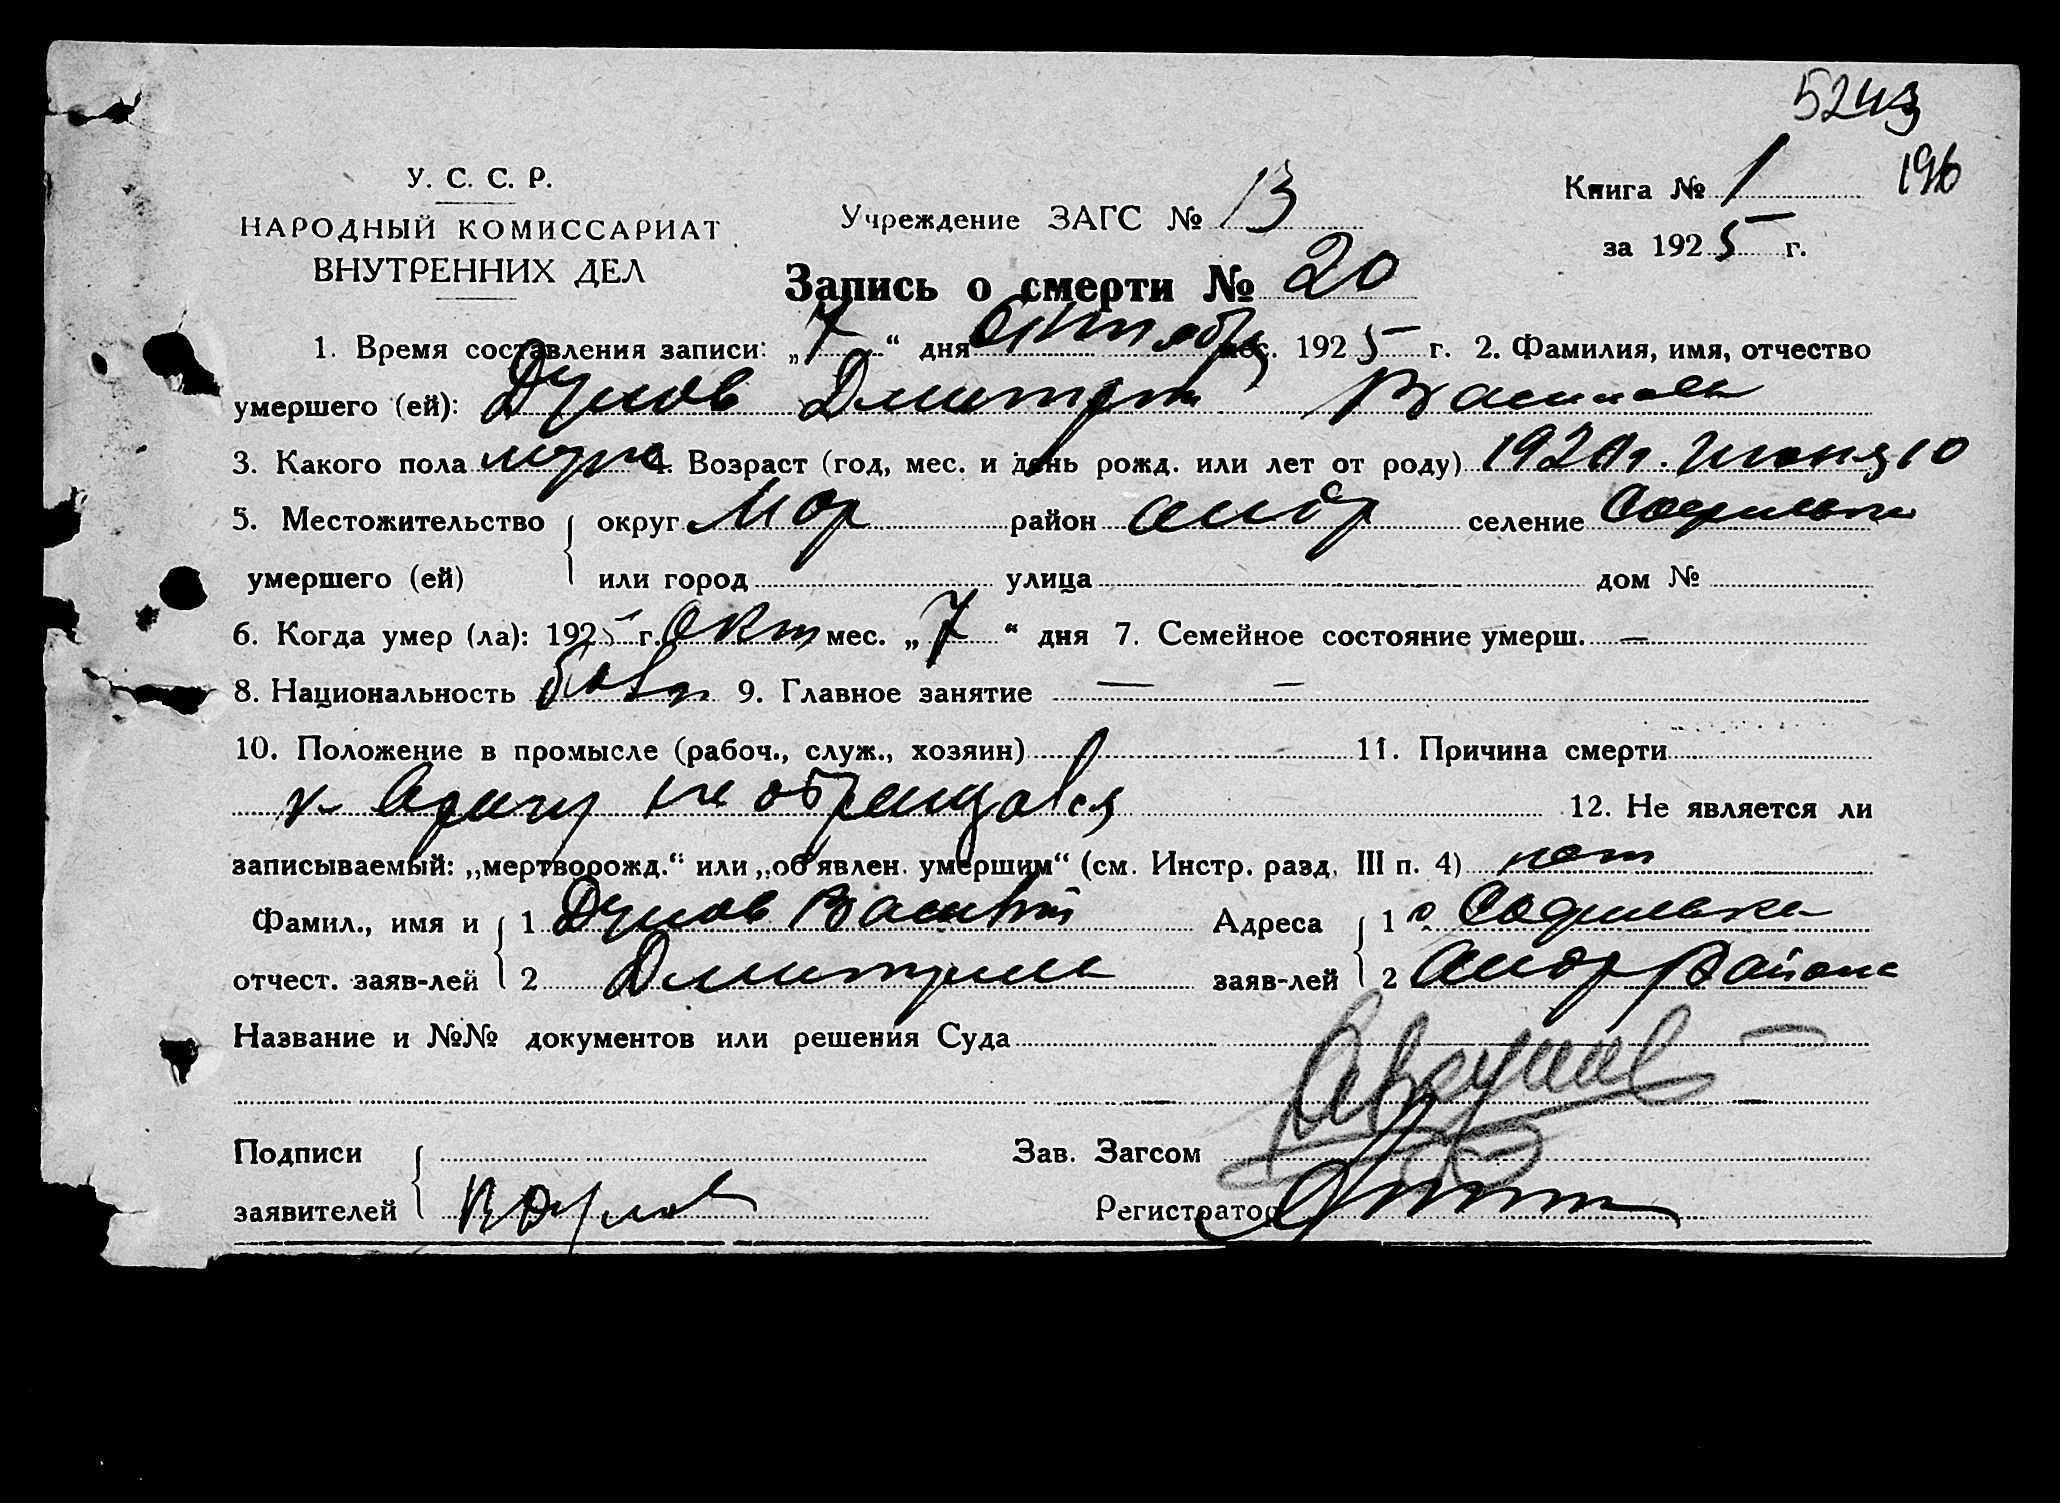 5243
У. С. С. Р.
НАРОДНЫЙ КОМИССАРИАТ
ВНУТРЕННИХ ДЕЛ
Учреждение ЗАГС № 13
Книга № 1 196
за 1925 г.
Запись о смерти № 20
1. Время составления записи: „7“ дня Октября мес. 1925 г. 2. Фамилия, имя, отчество
умершего (ей): Дулов Дмитрий
3. Какого пола муж 4. Возраст (год, мес. и день рожд. или лет от роду) июня 10
5. Местожительство округ район селение Софиевка
умершего (ей) или город улица дом №
6. Когда умер (ла): 1925 г. Окт мес. „7“ дня 7. Семейное состояние умерш. —
8. Национальность 9. Главное занятие — —
10. Положение в промысле (рабоч., служ., хозяин) 11. Причина смерти
к врачу не обращался 12. Не является ли
записываемый: „мертворожд.“ или „об'явлен. умершим“ (см. Инстр. разд. III п. 4) нет
Фамил., имя и 1 Дулов Василий Адреса 1 с. Софиевка
отчест. заяв-лей 2 заяв-лей 2 Андр района
Название и №№ документов или решения Суда
Подписи Зав. Загсом
заявителей В Дулов Регистратор